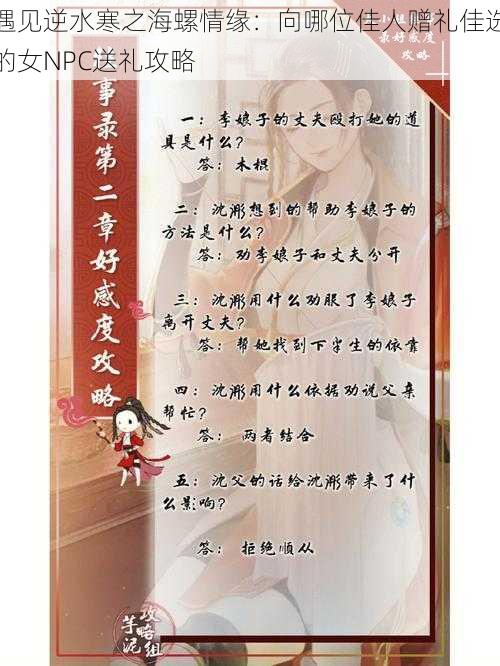 遇见逆水寒之海螺情缘：向哪位佳人赠礼佳选
的女NPC送礼攻略
好感度
攻略
事录第二章好感度攻略
一：李娘子的丈夫殴打她的道
具是什么？
答：木棍
二：沈彨想到的帮助李娘子的
方法是什么？
答：劝李娘子和丈夫分开
三：沈彨用什么劝服了李娘子
离开丈夫？
答：帮她找到下半生的依靠
四：沈彨用什么依据劝说父亲
帮忙？
答： 两者结合
五：沈父的话给沈彨带来了什
么影响？
答： 拒绝顺从
芋泥
攻略组